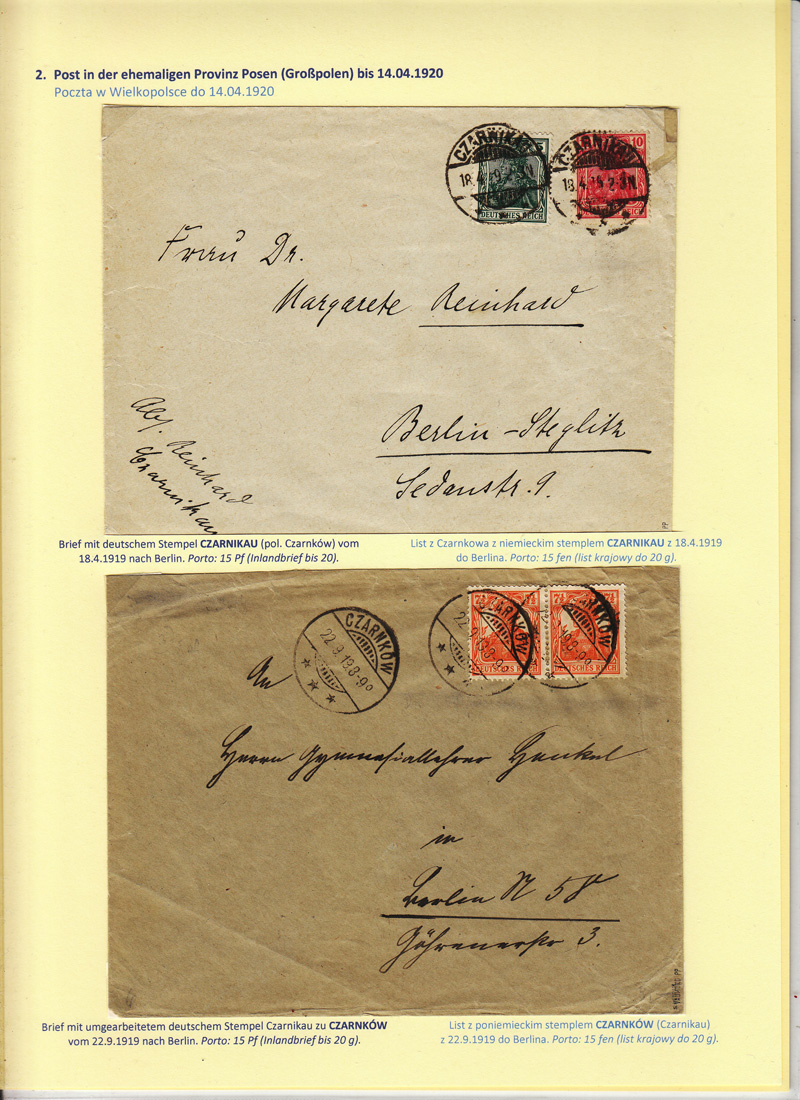 2. Post in der ehemaligen Provinz Posen (Großpolen) bis 14.04.1920
Poczta w Wielkopolsce do 14.04.1920
CZARNIKAU
18.4.19 2-3N
5
DEUTSCHES REICH
CZARNIKAU
18.4.19 2-3N
10
REICH
Frau Dr.
Margarete Reinhard
Berlin-Steglitz
Sedanstr. 9.
Abs. Reinhard
Czarnikau
PP
Brief mit deutschem Stempel CZARNIKAU (pol. Czarnków) vom
18.4.1919 nach Berlin. Porto: 15 Pf (Inlandbrief bis 20).
List z Czarnkowa z niemieckim stemplem CZARNIKAU z 18.4.1919
do Berlina. Porto: 15 fen (list krajowy do 20 g).
CZARNKÓW
22.9.19.8-9º
CZARNKÓW
22.9.19.8-9º
7½
7½
DEUTSCHES REICH
DEUTSCHES REICH
An
Herrn Gymnasiallehrer Henkel
in
Berlin N 58
Göhrenerstr 3.
PP
Brief mit umgearbeitetem deutschem Stempel Czarnikau zu CZARNKÓW
vom 22.9.1919 nach Berlin. Porto: 15 Pf (Inlandbrief bis 20 g).
List z poniemieckim stemplem CZARNKÓW (Czarnikau)
z 22.9.1919 do Berlina. Porto: 15 fen (list krajowy do 20 g).